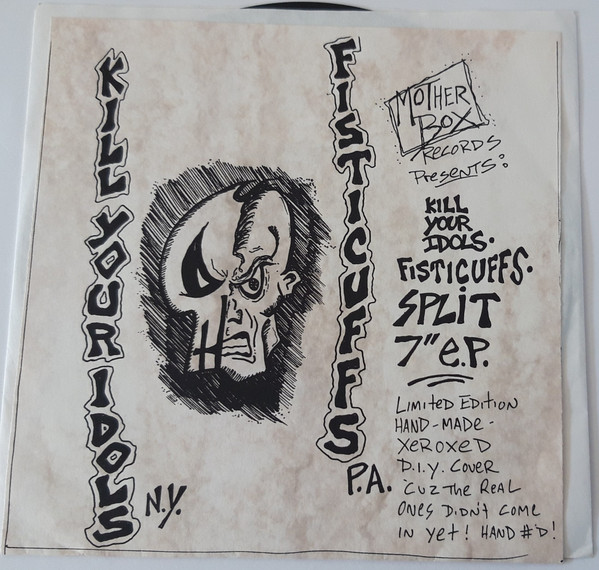 KILL YOUR IDOLS
N.Y.
FISTICUFFS
P.A.
MOTHER
BOX
RECORDS
PRESENTS:
KILL
YOUR
IDOLS.
FISTICUFFS.
SPLIT
7" e.P.
LIMITED EDITION
HAND-MADE-
XEROXED
D.I.Y. COVER
'CUZ THE REAL
ONES DIDN'T COME
IN YET! HAND #'D!